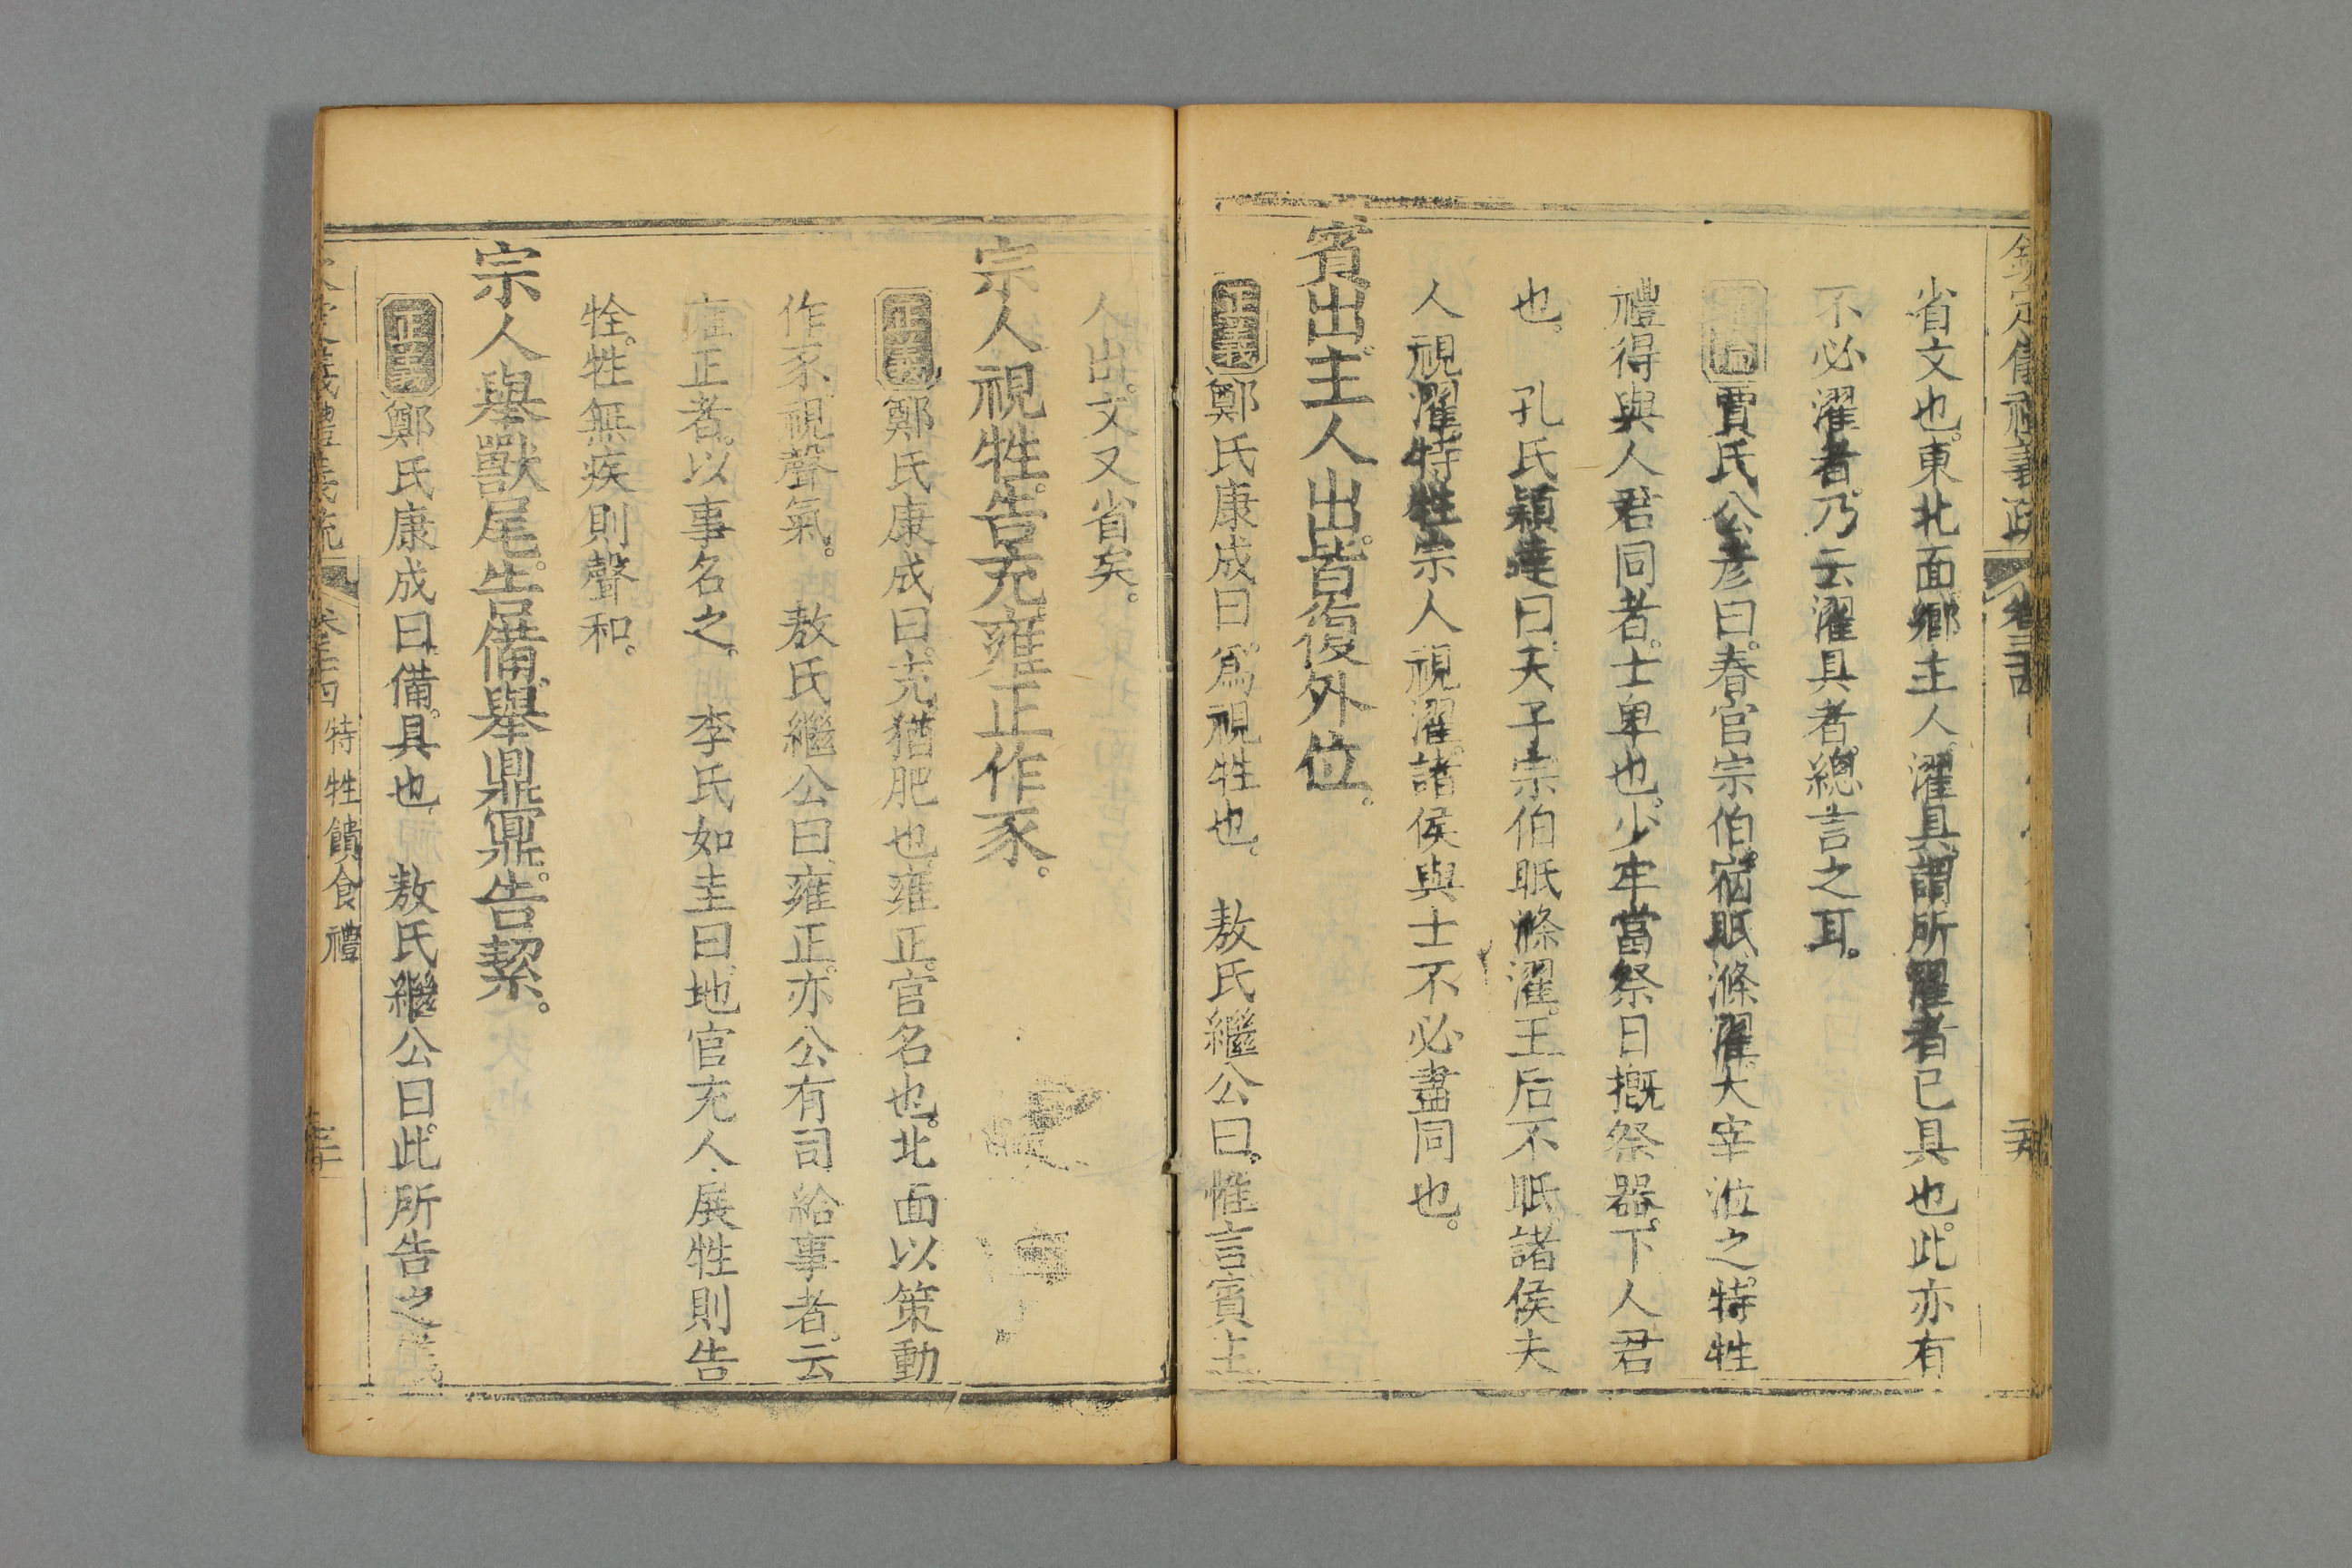 欽定儀禮義疏 卷三十四
省文也。東北面鄉主人。濯具。謂所濯者已具也。此亦有
不必濯者。乃云濯具者。總言之耳。
賈氏公彥曰。春官宗伯。宿眂滌濯。大宰涖之。特牲
禮得與人君同者。士卑也。少牢當祭日摡祭器。下人君
也。 孔氏穎達曰。天子宗伯眂滌濯。王后不眂。諸侯夫
人視濯。特牲宗人視濯。諸侯與士不必盡同也。
賓出。主人出。皆復外位。
正義鄭氏康成曰。爲視牲也。 敖氏繼公曰。惟言賓主
人出。文又省矣。
宗人視牲。告充。雍正作豕。
正義鄭氏康成曰。充。猶肥也。雍正。官名也。北面以策動
作豕。視聲氣。 敖氏繼公曰。雍正。亦公有司給事者。云
雍正者。以事名之。 李氏如圭曰。地官充人。展牲則告
牷。牲無疾則聲和。
宗人舉獸尾。告備。舉鼎鼏。告絜。
正義鄭氏康成曰。備。具也。 敖氏繼公曰。此所告之
欽定儀禮義疏 卷三十四 特牲饋食禮